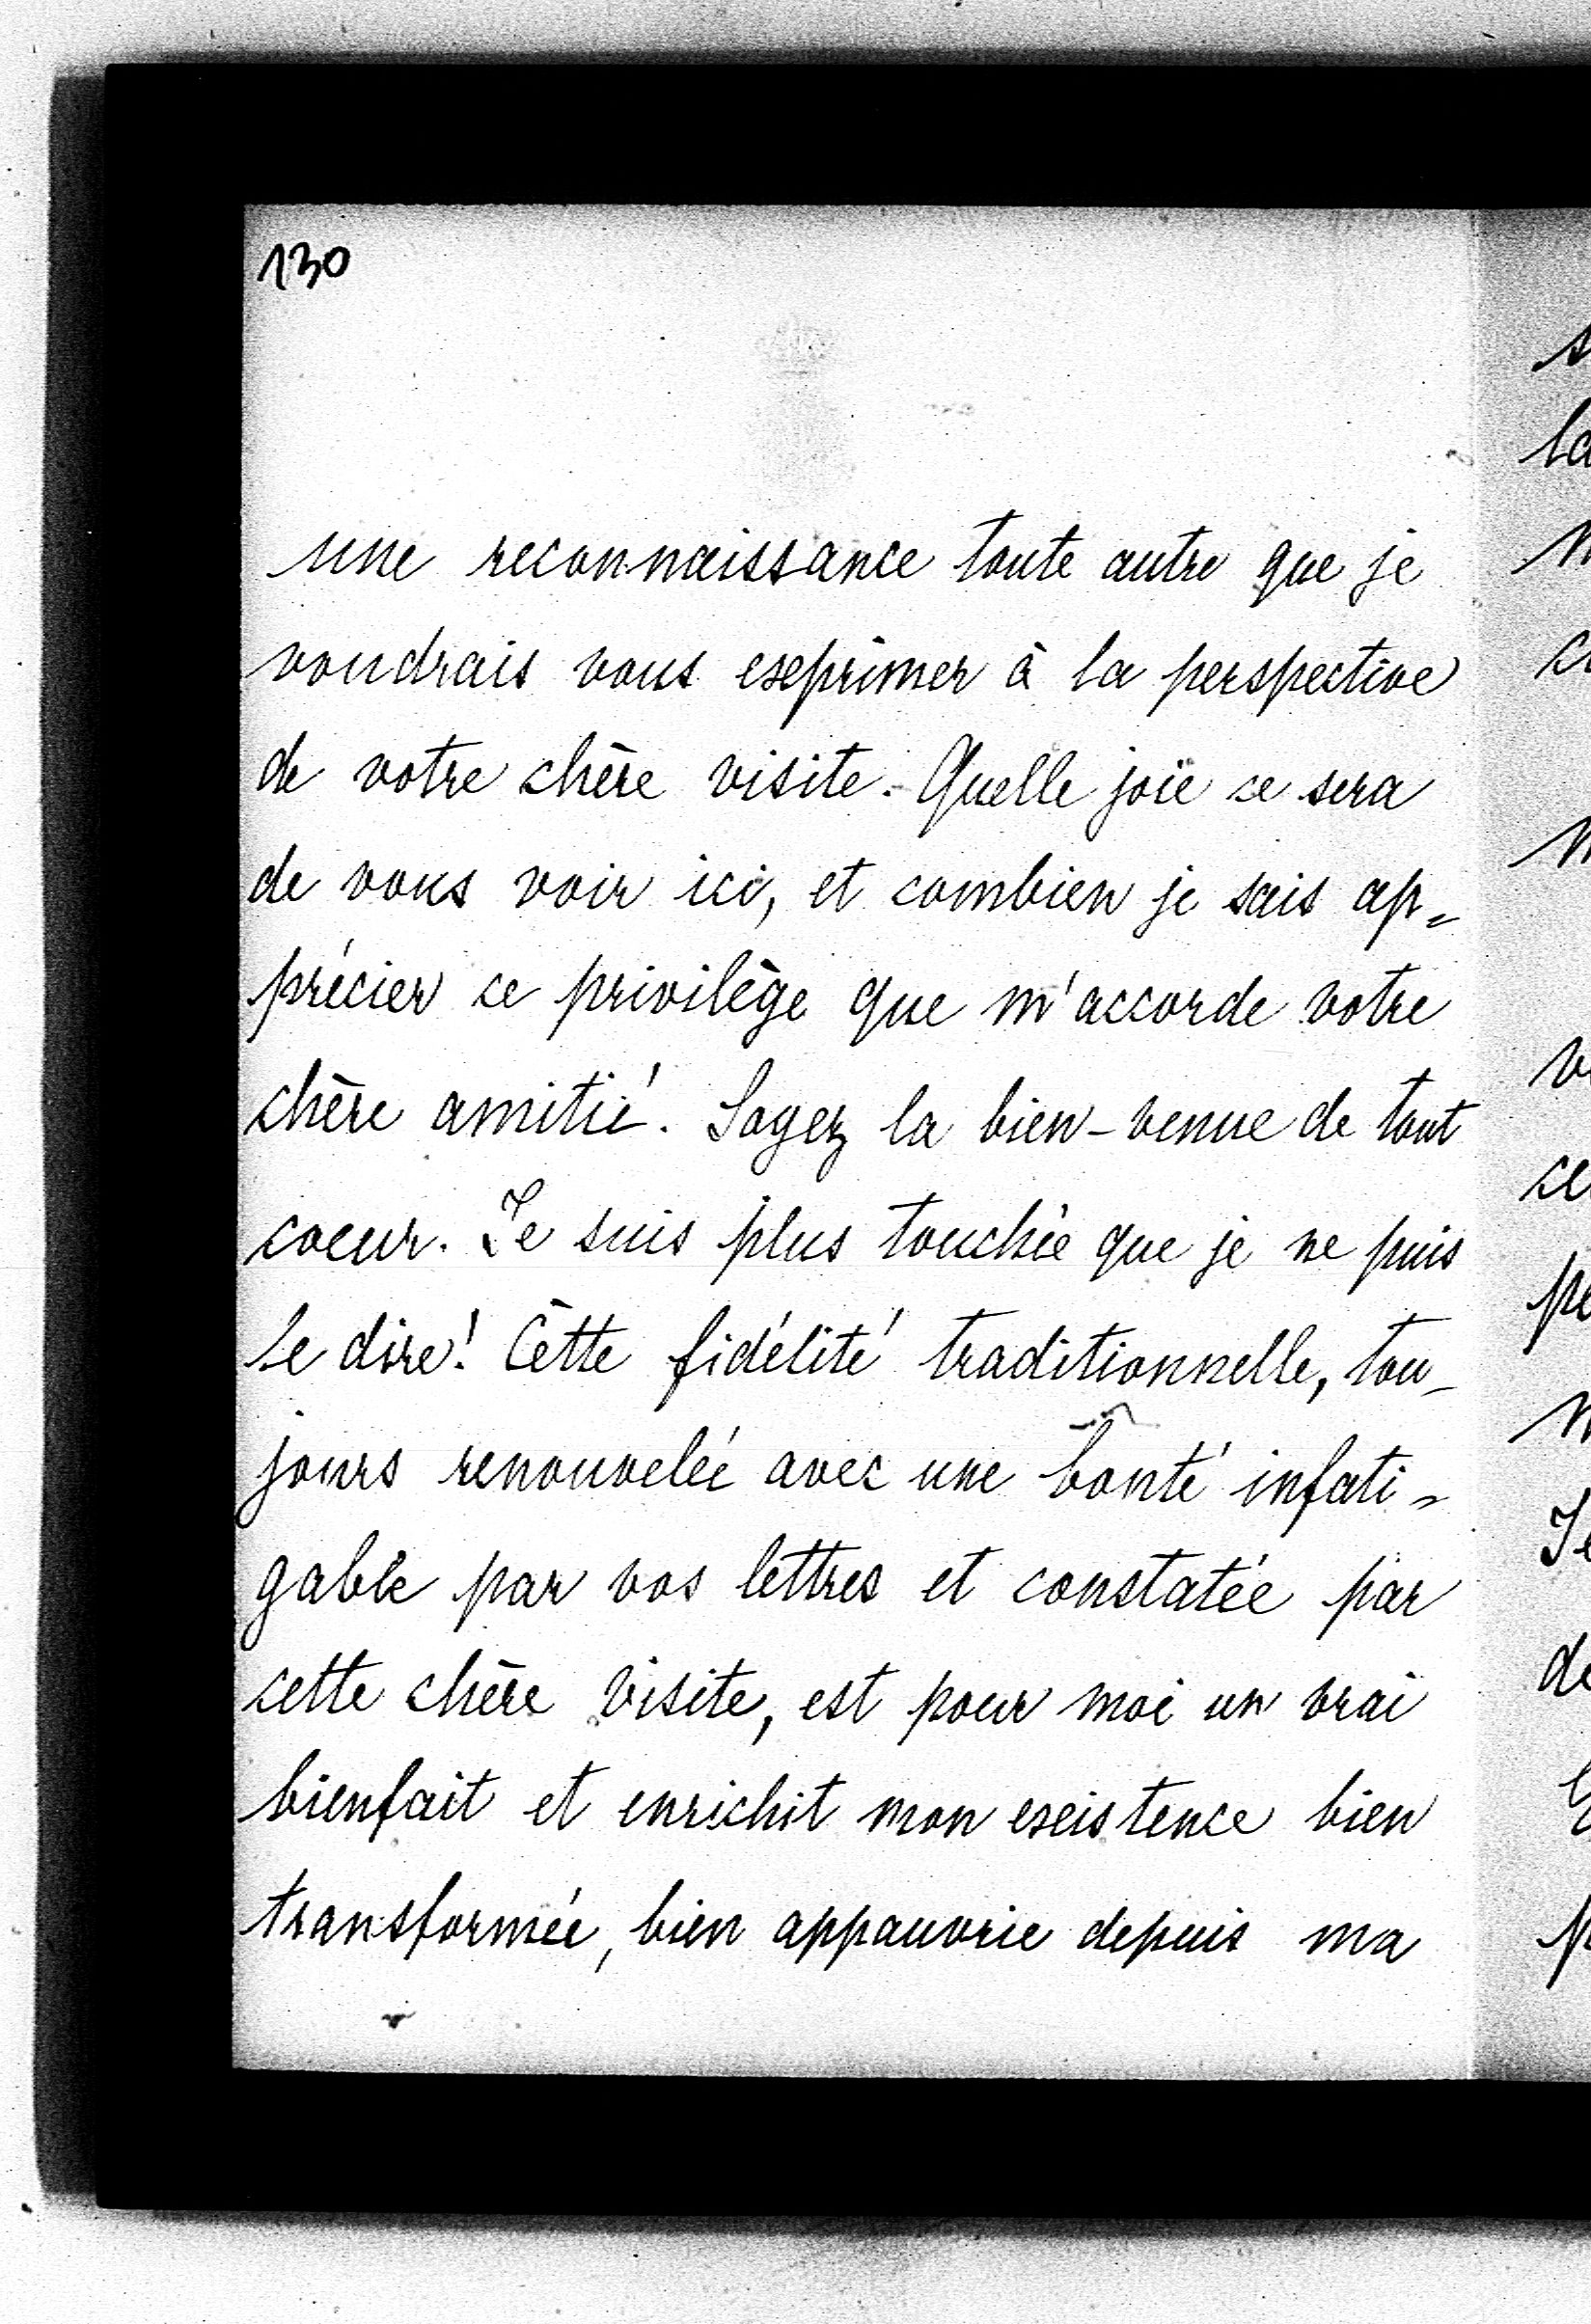 130
une reconnaissance toute autre que je
voudrais vous exprimer à la perspective
de votre chère visite. Quelle joie ce sera
de vous voir ici, et combien je sais ap=
précier ce privilège que m'accorde votre
chère amitié. Soyez la bien-venue de tout
coeur. Je suis plus touchée que je ne puis
le dire! Cette fidélité traditionnelle, tou-
jours renouvelée avec une bonté infati=
gable par vos lettres et constatée par
cette chère visite, est pour moi un vrai
bienfait et enrichit mon existence bien
transformée, bien appauvrie depuis ma